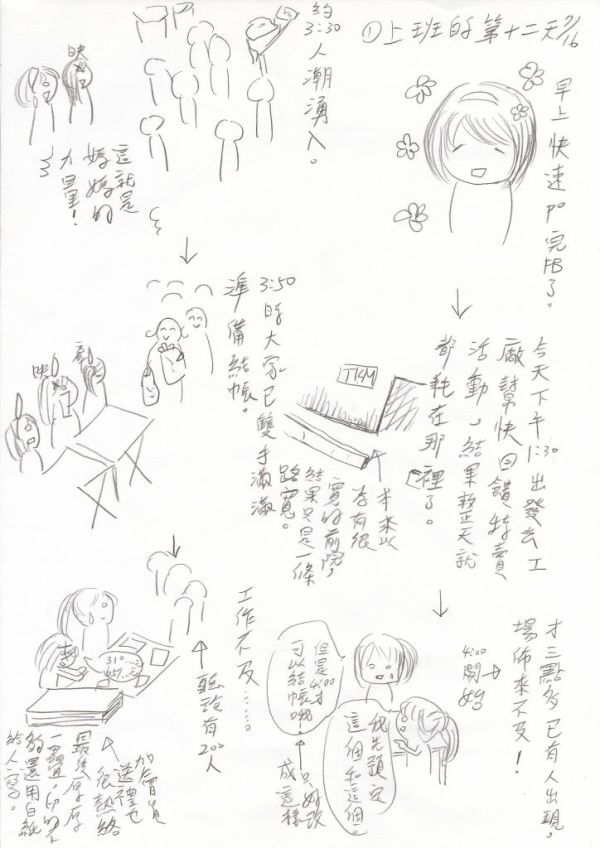 ①上班的第十二天 7/16
早上快速po完FB了。
今天下午1:30出發去工
廠幫快回饋特賣
活動，結果整天就
都耗在那裡了。
TKM
本來以
為有很
寬的前院，
結果只是一條
路寬。
才三點多已有人出現，
場佈來不及！
4:00
開始
我先預定
這個和這個。
但是4:00才
可以結帳哦！
只好改
成這樣
約
3:30
人潮湧入。
映
這就是
媽媽的
力量！
3:50時大家已雙手滿滿
準備結帳。
映
工作不及……。
聽說有200人
31°
657元
加會員
送禮也
很熱絡
最後厚厚
一疊，印的不
夠還用白紙
給人寫。